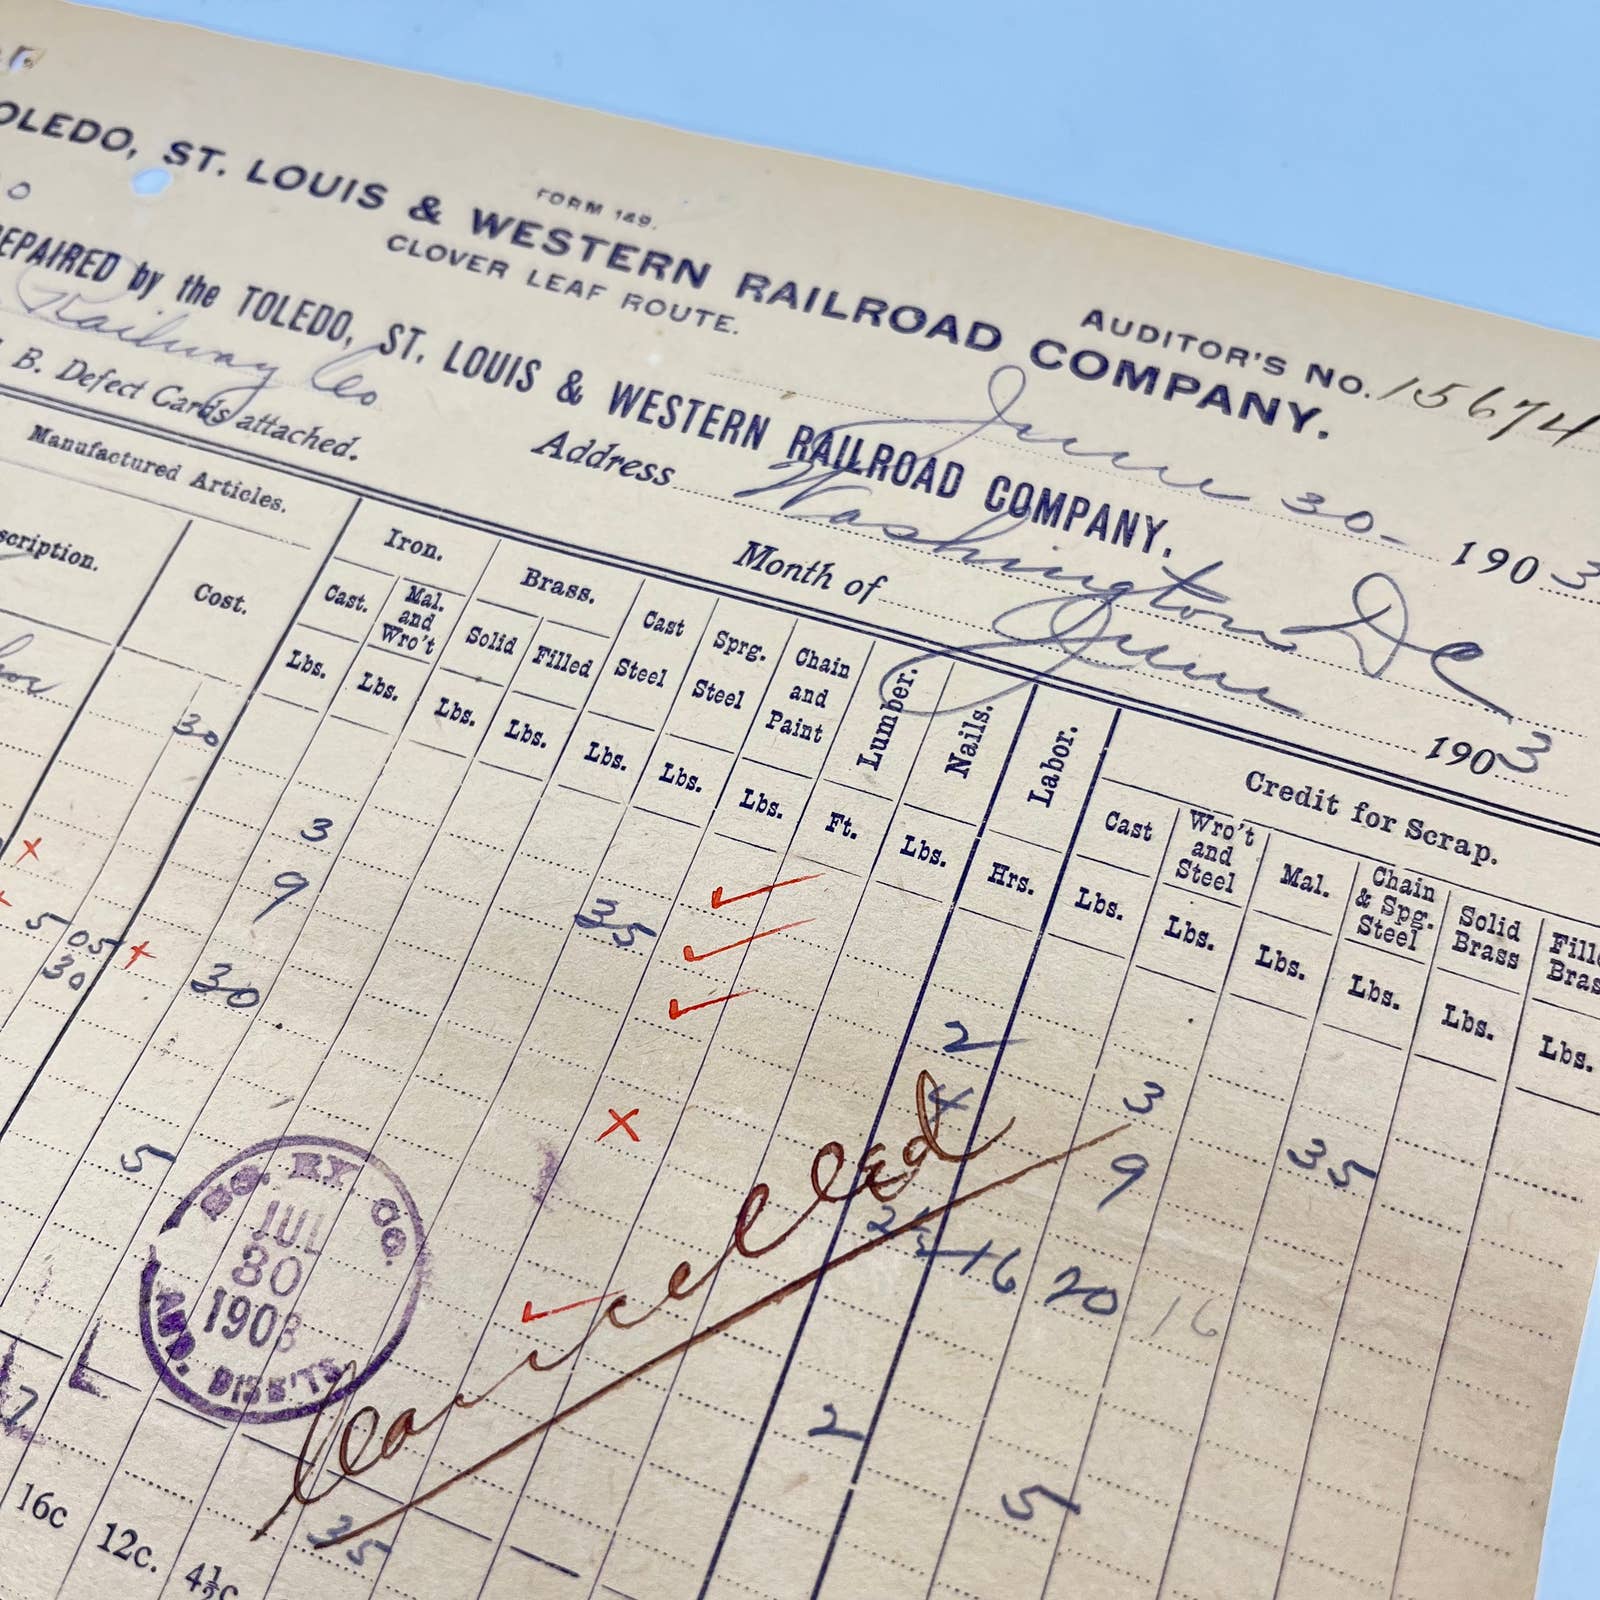 FORM 149.
AUDITOR'S NO. 15674
OLEDO, ST. LOUIS & WESTERN RAILROAD COMPANY.
CLOVER LEAF ROUTE.
June 30- 1903
EPAIRED by the TOLEDO, ST. LOUIS & WESTERN RAILROAD COMPANY.
Railway Co Address Washington DC
B. Defect Cards attached. Month of June 1903
Manufactured Articles. Iron. Brass. Cast Steel Sprg. Steel Chain and Paint Lumber. Nails. Labor. Credit for Scrap.
scription. Cost. Cast. Mal. and Wro't Solid Filled Cast Wro't and Steel Mal. Chain & Spg. Steel Solid Brass Fille Bras
Lbs. Lbs. Lbs. Lbs. Lbs. Lbs. Lbs. Ft. Lbs. Hrs. Lbs. Lbs. Lbs. Lbs. Lbs. Lbs.
30
3
9 35
5 05 30
30
2
4 3
9 35
2½ 16 20 16
5
2
5
35
Cancelled
SO. RY. CO.
JUL
30
1903
AUD. DISB'TS
7
16c 12c. 4½c